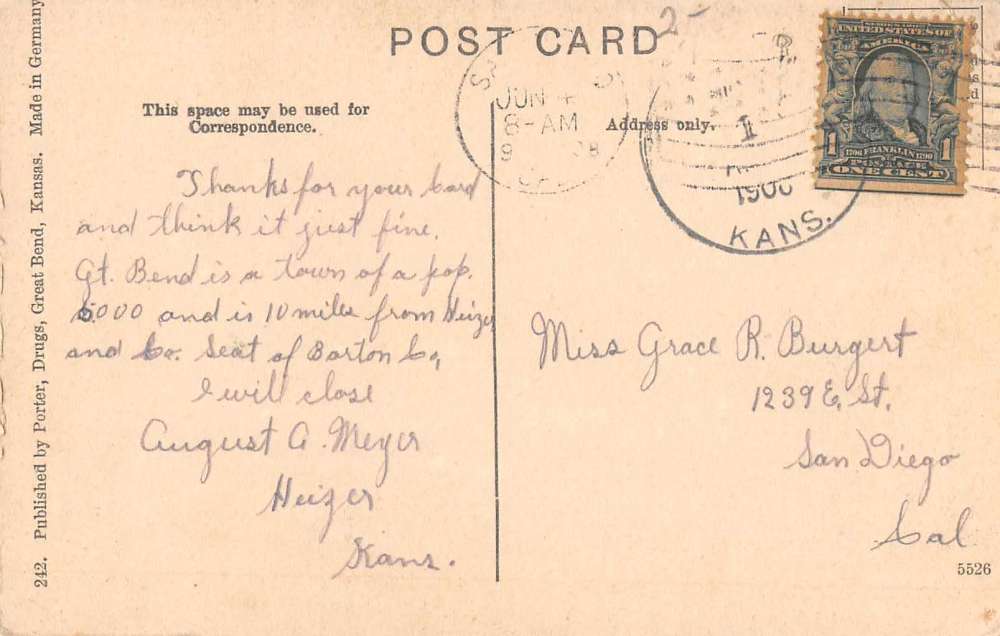 POST CARD
2-
This space may be used for
Correspondence.
Address only.
JUN 4
8-AM
1
KANS.
UNITED STATES OF
AMERICA
1 FRANKLIN 1
POSTAGE
ONE CENT
Thanks for your Card
and think it just fine.
Gt. Bend is a town of a pop.
5000 and is 10 miles from Heizer
and Co. Seat of Barton Co,
I will close
August A. Meyer
Heizer
Kans.
Miss Grace R. Burgert
1239 E. St.
San Diego
Cal
5526
242. Published by Porter, Drugs, Great Bend, Kansas. Made in Germany